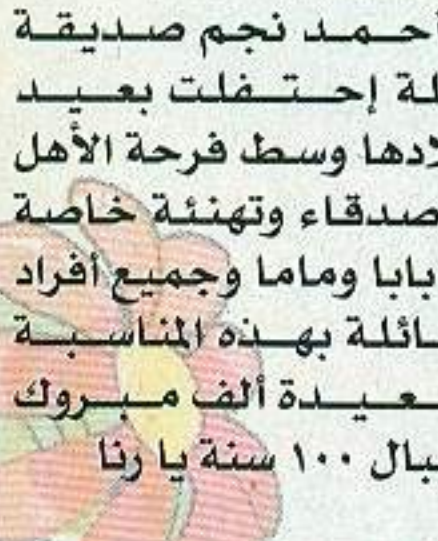 أحمد نجم صديقة
لة إحتفلت بعيد
لادها وسط فرحة الأهل
صدقاء وتهنئة خاصة
بابا وماما وجميع أفراد
ائلة بهذه المناسبة
عيدة ألف مبروك
بال ١٠٠ سنة يا رنا